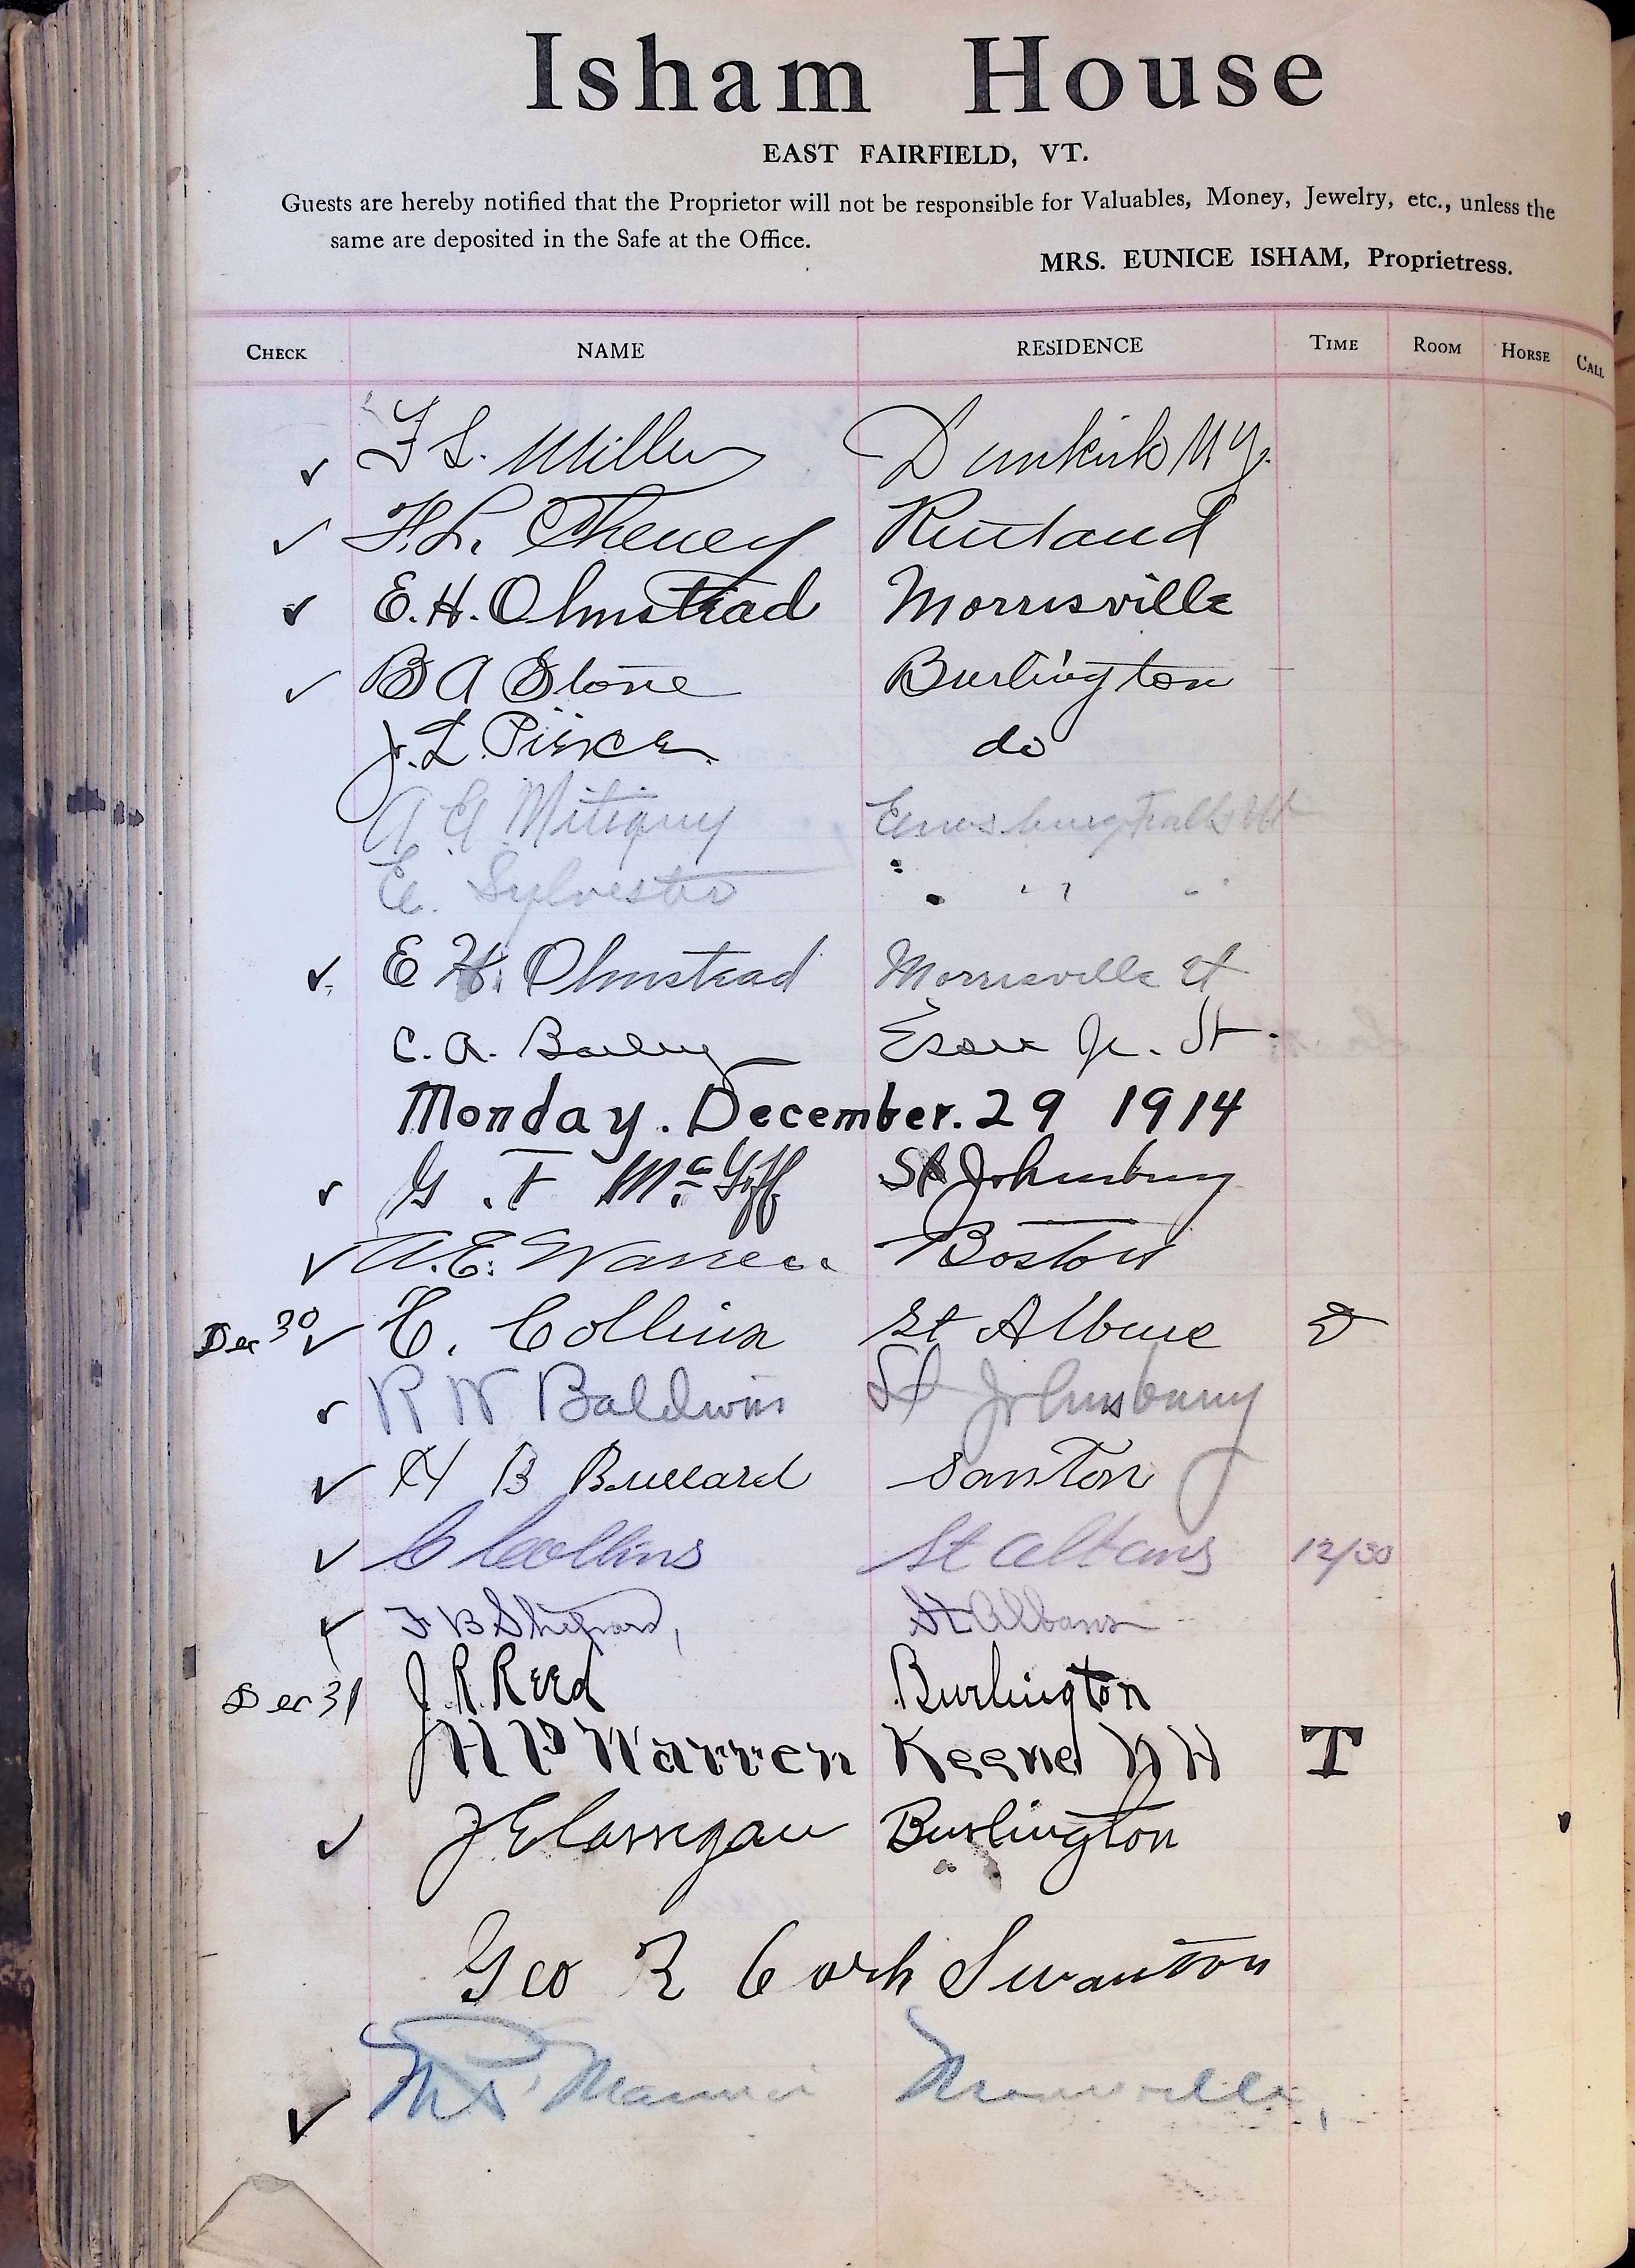 Isham House
EAST FAIRFIELD, VT.
Guests are hereby notified that the Proprietor will not be responsible for Valuables, Money, Jewelry, etc., unless the
same are deposited in the Safe at the Office.
MRS. EUNICE ISHAM, Proprietress.
CHECK NAME RESIDENCE TIME ROOM HORSE CALL
✓ F L. Miller Dunkirk N Y.
✓ F. L. Cheney Rutland
✓ E. H. Olmstead Morrisville
✓ B A Stone Burlington
J. L. Pierce do
A G Mitiguy Enosburg Falls Vt
E. Sylvester " " " "
✓ E H. Olmstead Morrisville Vt
C. A. Bailey Essex Jc. Vt.
Monday. December. 29 1914
✓ G. F McGiff St Johnsbury
✓ A. E. Warren Boston
Dec 30 ✓ C. Collins St Albans
✓ R W Baldwin St Johnsbury
✓ H B Bullard Swanton
✓ C Collins St Albans 12/30
✓ F B Shepard, St Albans
Dec 31 J. R. Reed Burlington
H P Warren Keene N H T
✓ J E Burlington
Geo R Cork Swanton
✓ Morrisville,